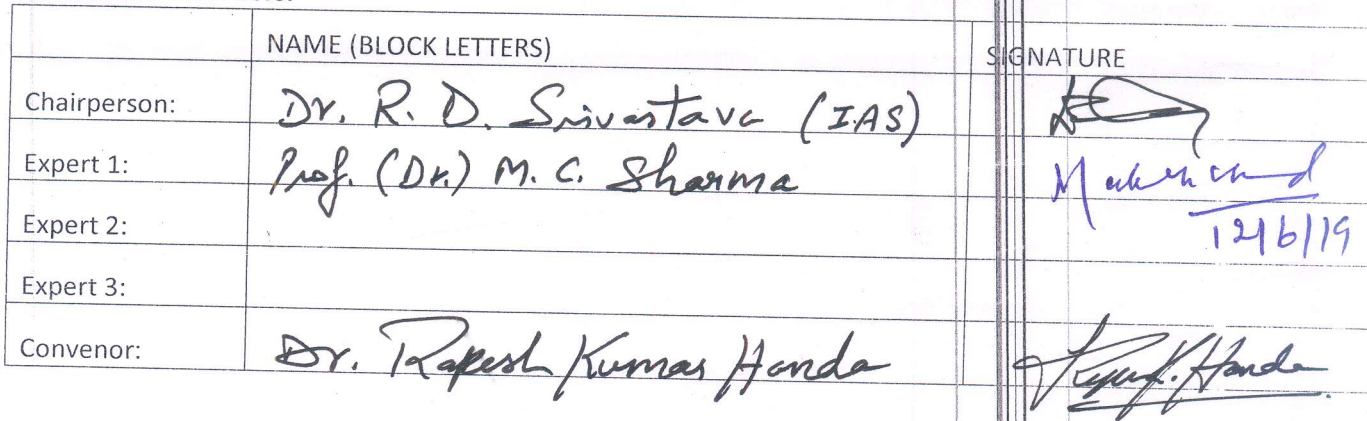 NAME (BLOCK LETTERS) SIGNATURE
Chairperson: Dr. R. D. Srivastava (IAS)
Expert 1: Prof. (Dr.) M. C. Sharma
Expert 2: 12/6/19
Expert 3:
Convenor: Dr. Kumar Handa K. Handa